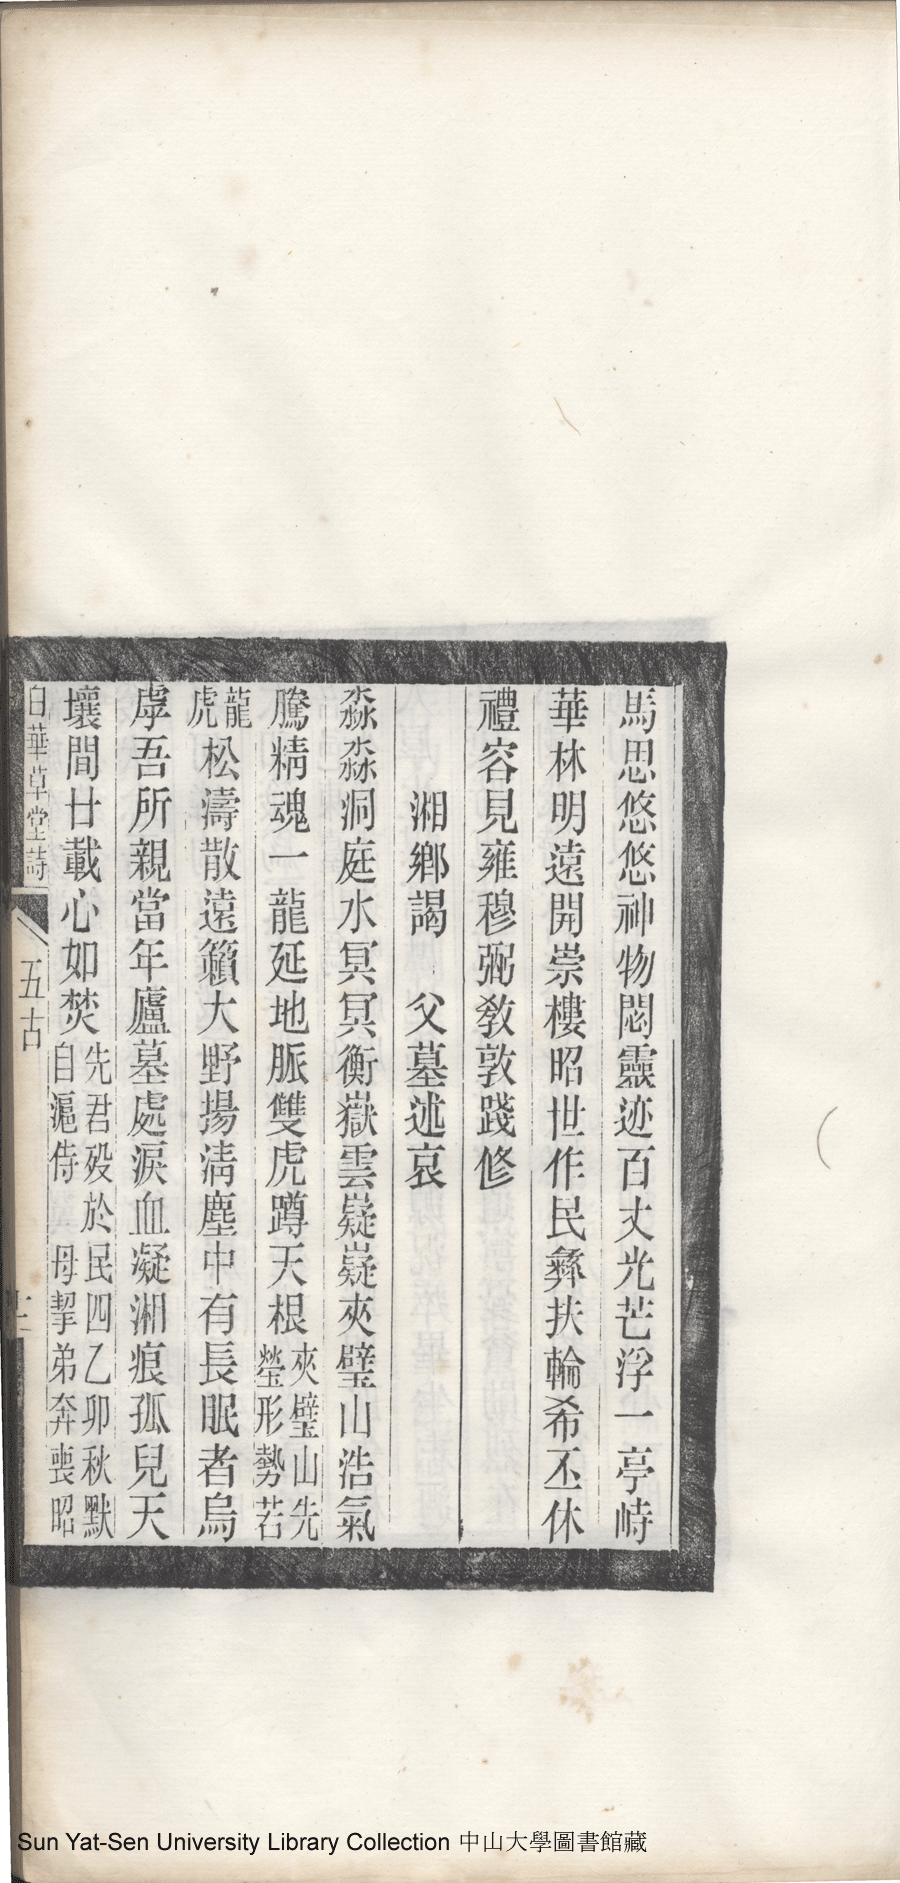 馬思悠悠神物閟靈迹百丈光芒浮一亭峙
華林明遠開崇樓昭世作民彝扶輪希丕休
禮容見雍穆弼教敦踐修
湘鄉謁 父墓述哀
淼淼洞庭水冥冥衡嶽雲嶷嶷夾璧山浩氣
騰精魂一龍延地脈雙虎蹲天根夾璧山先塋形勢若
龍虎松濤散遠籟大野揚淸塵中有長眠者烏
虖吾所親當年廬墓處淚血凝湘痕孤兒天
壤間廿載心如焚先君歿於民四乙卯秋默自滬侍 母挈弟奔喪昭
白華草堂詩 五古
Sun Yat-Sen University Library Collection 中山大學圖書館藏